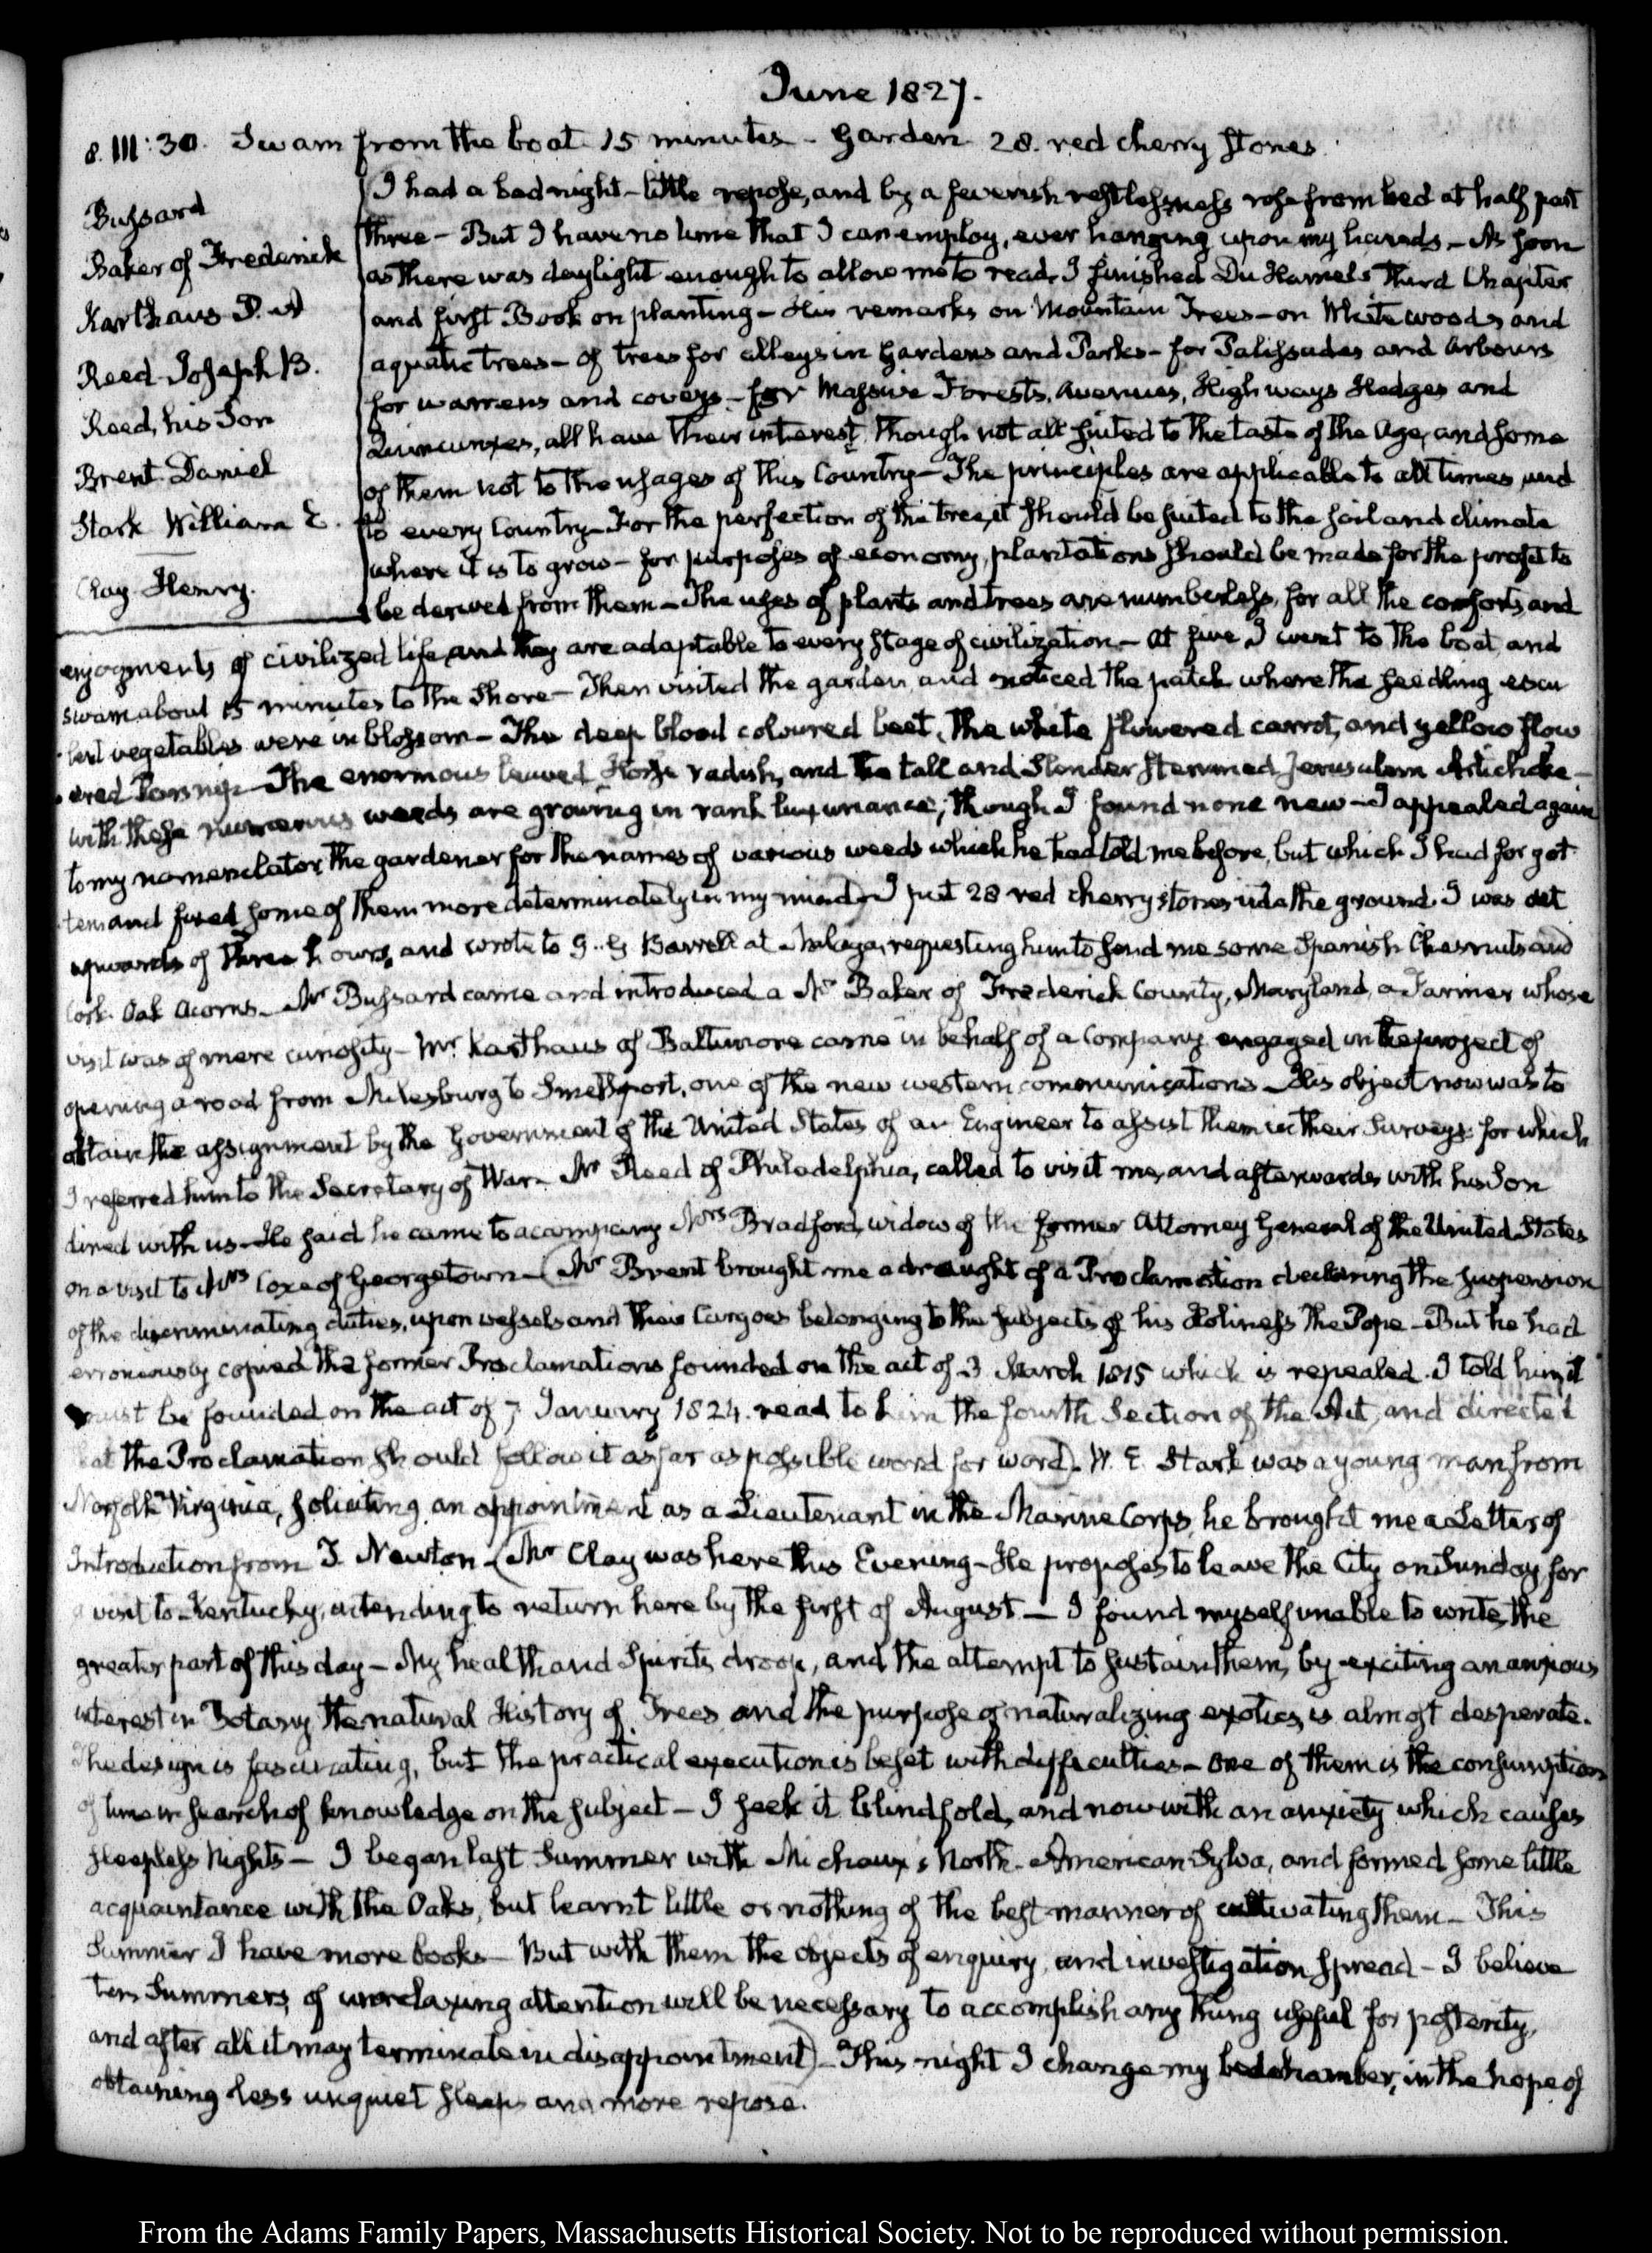 June 1827.
8. III:30. Swam from the boat 15 minutes - Garden 28. red cherry stones.
Bussard
Baker of Frederick
Karthaus P. A
Reed Joseph B.
Reed, his Son
Brent Daniel
Stark William E.
Clay Henry.
I had a bad night - little repose, and by a feverish restlessness rose from bed at half past
three - But I have no time that I can employ, ever hanging upon my hands - As soon
as there was daylight enough to allow me to read, I finished Du Hamel's third Chapter
and first Book on planting - His remarks on Mountain Trees - on White woods and
aquatic trees - of trees for alleys in Gardens and Parks - for Palissades and Arbours
for warrens and coveys - for Massive Forests, Avenues, High ways Hedges and
Quincunxes, all have their interest, though not all suited to the taste of the Age, and some
of them not to the usages of this Country - The principles are applicable to all times and
to every Country - For the perfection of the tree, it should be suited to the soil and climate
where it is to grow - for purposes of economy, plantations should be made for the profit to
be derived from them - The uses of plants and trees are numberless, for all the comforts and
enjoyments of civilized life, and they are adaptable to every stage of civilization - At five I went to the boat, and
swam about 15 minutes to the shore - Then visited the garden, and noticed the patch where the seedling escu
lent vegetables were in blossom - The deep blood coloured beet, the white flowered carrot, and yellow flow
ered Parsnip - The enormous leaved Horse radish, and the tall and Slender stemmed Jerusalem Artichoke -
with these numerous weeds are growing in rank luxuriance; though I found none new - I appealed again
to my nomenclator, the gardener for the names of various weeds which he had told me before, but which I had forgot
ten and fixed some of them more determinately in my mind) I put 28 red cherry stones into the ground. I was out
upwards of three hours, and wrote to G. G Barrell at Malaga, requesting him to send me some Spanish Chesnuts and
Cork Oak Acorns - Mr Bussard came and introduced a Mr Baker of Frederick County, Maryland, a Farmer whose
visit was of mere curiosity - Mr. Karthaus of Baltimore came in behalf of a Company engaged in the project of
opening a road from Milesburg to Smethport, one of the new western communications - His object now was to
obtain the assignment by the Government of the United States of an Engineer to assist them in their Surveys: for which
I referred him to the Secretary of War - Mr Reed of Philadelphia, called to visit me, and afterwards with his Son
dined with us - He said he came to accompany Mrs Bradford, widow of the former Attorney General of the United States
on a visit to Mrs Coxe of Georgetown - (Mr Brent brought me a draught of a Proclamation declaring the suspension
of the discriminating duties, upon vessels and their Cargoes belonging to the subjects of his Holiness the Pope - But he had
erroneously copied the former Proclamations founded on the act of 3 March 1815 which is repealed. I told him it
must be founded on the act of 7 January 1824. read to him the fourth Section of the Act, and directed
that the Proclamation should follow it as far as possible word for word). W. E. Stark was a young man from
Norfolk Virginia, soliciting an appointment as a Lieutenant in the Marine Corps, he brought me a Letter of
Introduction from T. Newton - (Mr Clay was here this Evening - He proposes to leave the City on Sunday, for
a visit to Kentucky, intending to return here by the first of August - I found myself unable to write, the
greater part of this day - My health and Spirits droop, and the attempt to sustain them, by exciting an anxious
interest in Botany, the natural History of Trees and the purpose of naturalizing exotics, is almost desperate.
The design is fascinating, but the practical execution is beset with difficulties - One of them is the consumption
of time in search of knowledge on the subject - I seek it blindfold, and now with an anxiety which causes
sleepless Nights - I began last Summer with Michaux's North-American Sylva, and formed some little
acquaintance with the Oaks, but learnt little or nothing of the best manner of cultivating them - This
Summer I have more books - But with them the objects of enquiry, and investigation spread - I believe
ten Summers, of unrelaxing attention will be necessary to accomplish any thing useful for posterity,
and after all it may terminate in disappointment) - This night I change my bedchamber, in the hope of
obtaining less unquiet sleep and more repose.
From the Adams Family Papers, Massachusetts Historical Society. Not to be reproduced without permission.